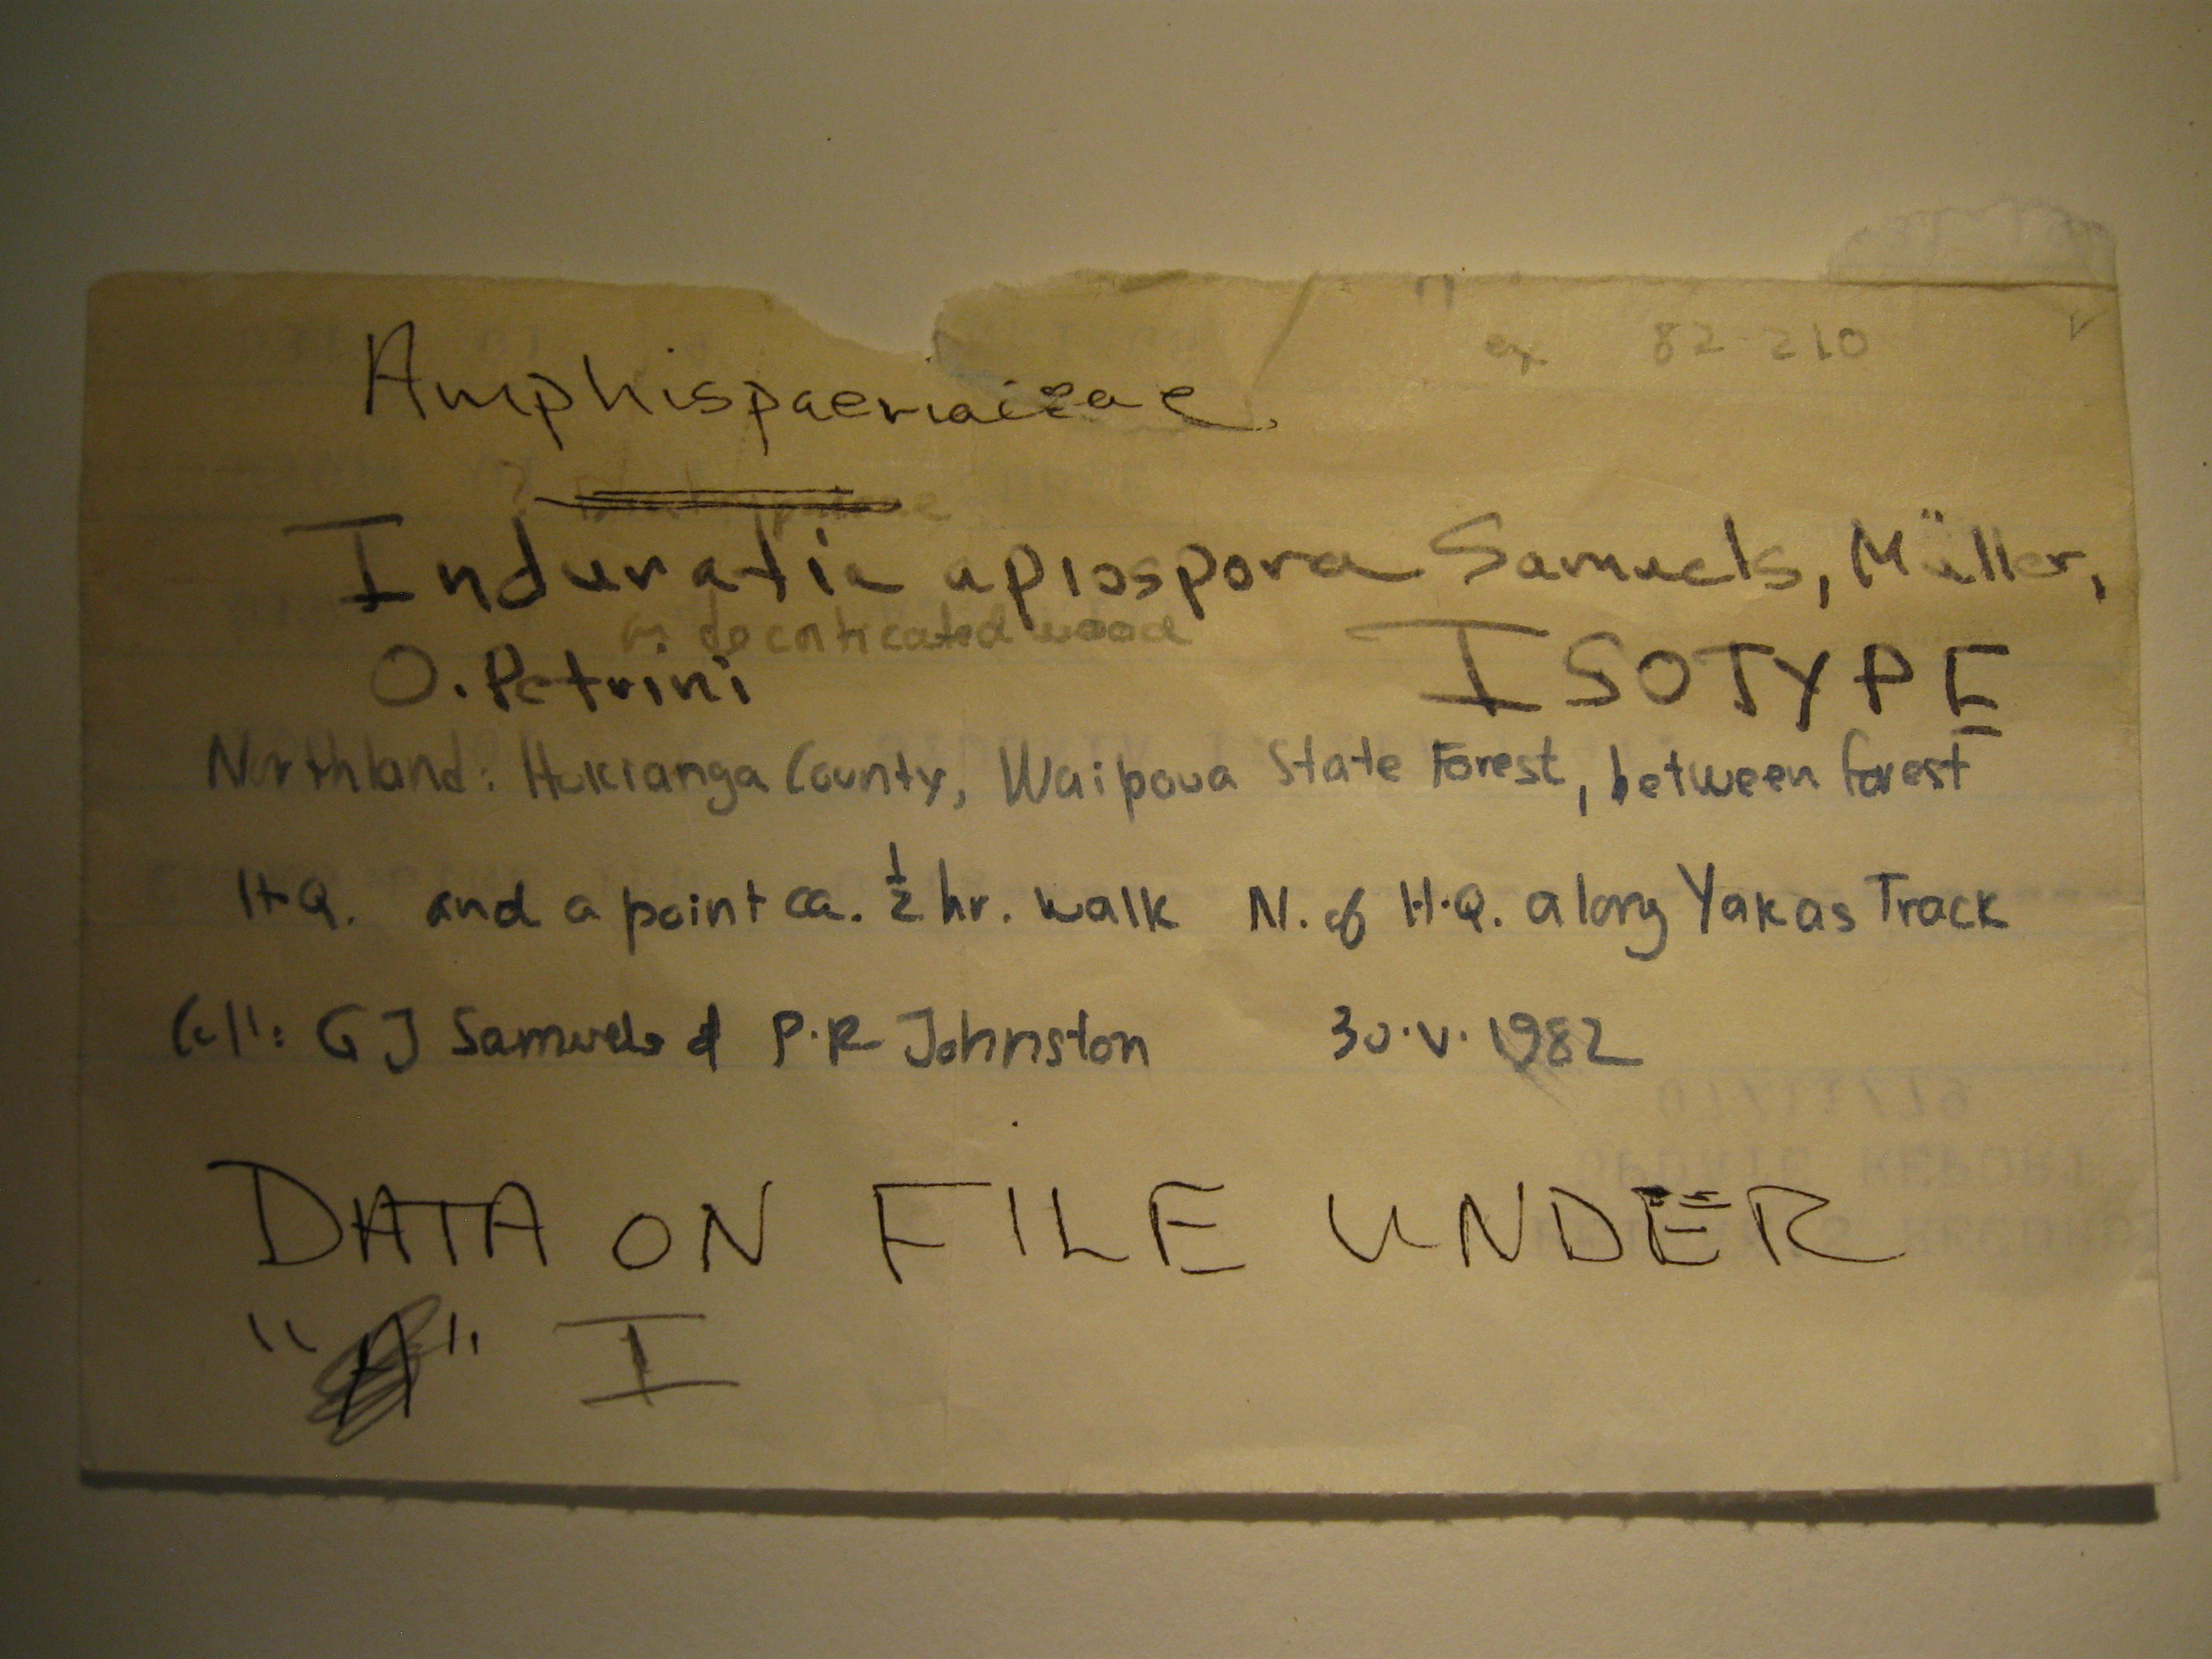 ex 82-210
Amphispaeriaceae.
Induratia apiospora Samuels, Müller,
on decorticated wood
O. Petrini ISOTYPE
Northland: Hokianga County, Waipoua State Forest, between forest
H.Q. and a point ca. ½ hr. walk N. of H.Q. along Yakas Track
Coll: G J Samuels & P.R. Johnston 30.V.1982
DATA ON FILE UNDER
"A" I